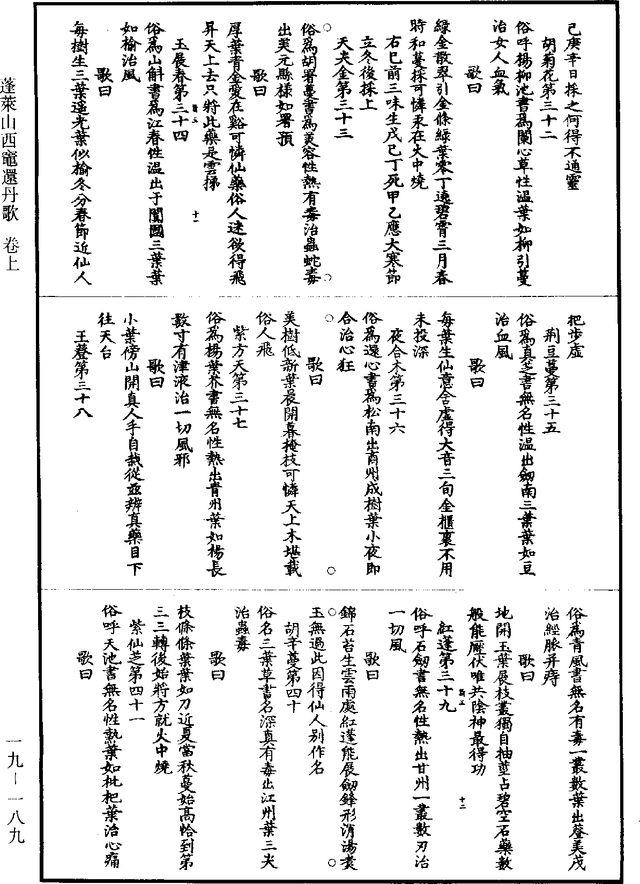 己庚辛日採之何得不通靈
胡菊花第三十二
俗呼楊柳池書爲蘭心草性温葉如柳引蔓
治女人血氣
歌曰
綠金散翠引金條綠葉零丁遠碧霄三月春
時和蔓採可憐汞在火中燒
右已前三味生戊己丁死甲乙應大寒節
立冬後採上
天夫金第三十三
俗爲胡署蔓書爲芙容性熱有毒治蟲蛇毒
出英元縣樣如署預
歌曰
厚葉青金愛在谿可憐仙藥俗人迷欲得飛
昇天上去只將此藥是雲梯
玉晨春第三十四
俗爲山斛書爲江春性温出于闐國三葉葉
如榆治風
歌曰
每樹生三葉蓮光葉似榆冬分春節近仙人
把步虛
荊豆蔓第三十五
俗爲真芝書無名性温出劒南三葉葉如豆
治血風
歌曰
每葉生仙意含虛得大音三旬金櫃裏不用
未投深
夜合木第三十六
俗爲還心書爲松南出商州成樹葉小夜即
合治心狂
歌曰
美樹低新葉晨開暮掩枝可憐天上木堪載
俗人飛
紫方天第三十七
俗爲楊葉芥書無名性熱出青州葉如楊長
數寸有津液治一切風邪
歌曰
小葉傍山開真人手自栽從兹辨真藥目下
往天台
玉簪第三十八
俗爲青風書無名有毒一叢數葉出登美茂
治經脉并痔
歌曰
地開玉葉展枝叢獨自抽莖占碧空石藥數
般能厭伏唯共陰神最得功
紅蓬第三十九
俗呼石劒書無名性熱出甘州一叢數刃治
一切風
歌曰
錦石苔生雲雨處紅蓬能展劒鋒形消湯煑
玉無過此因得仙人别作名
胡辛蔓第四十
俗名三葉草書名深真有毒出江州葉三尖
治蟲毒
歌曰
枝條條葉葉如刀近夏當秋蔓始高恰到第
三三轉後始將方就火中燒
紫仙芝第四十一
俗呼天池書無名性熱葉如枇杷葉治心痛
歌曰
蓬萊山西竈還丹歌 卷上
一九－一八九